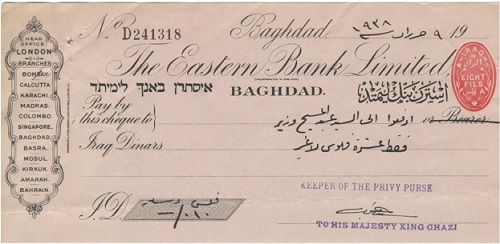 HEAD
OFFICE
LONDON
BRANCHES.
BOMBAY.
CALCUTTA
KARACHI.
MADRAS.
COLOMBO.
SINGAPORE.
BAGHDAD.
BASRA.
MOSUL.
KIRKUK.
AMARAH.
BAHRAIN.
No. D241318 Baghdad, ٩ حزيران ١٩٣٨ 19
The Eastern Bank Limited,
איסתרן באנך לימיתד BAGHDAD. استرن بنك ليمتد
IRAQ
EIGHTY
FILS
Pay by
this cheque to ادفعوا الى السيد عبد المسيح وزير or Bearer
Iraq Dinars فقط عشرة فلوس لا غير
KEEPER OF THE PRIVY PURSE
I.D. فلس دينار
-/٠١٠
TO HIS MAJESTY KING GHAZI